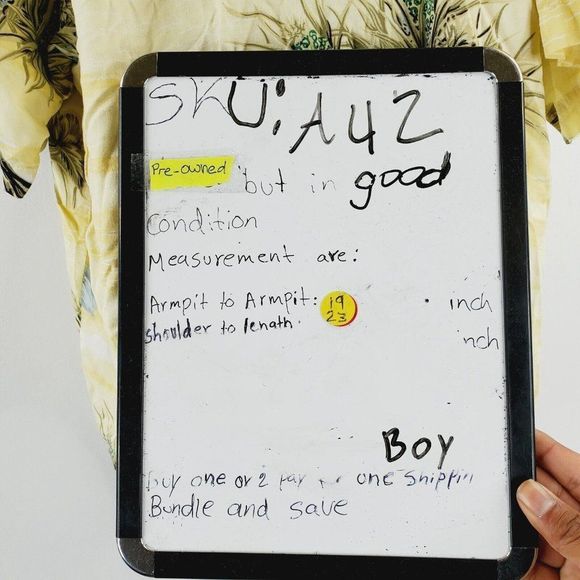 SKU: A42
Pre-owned but in good
Condition
Measurement are:
Armpit to Armpit: 19 inch
shoulder to lenath. 23 inch
Boy
buy one or 2 pay one shippin
Bundle and save